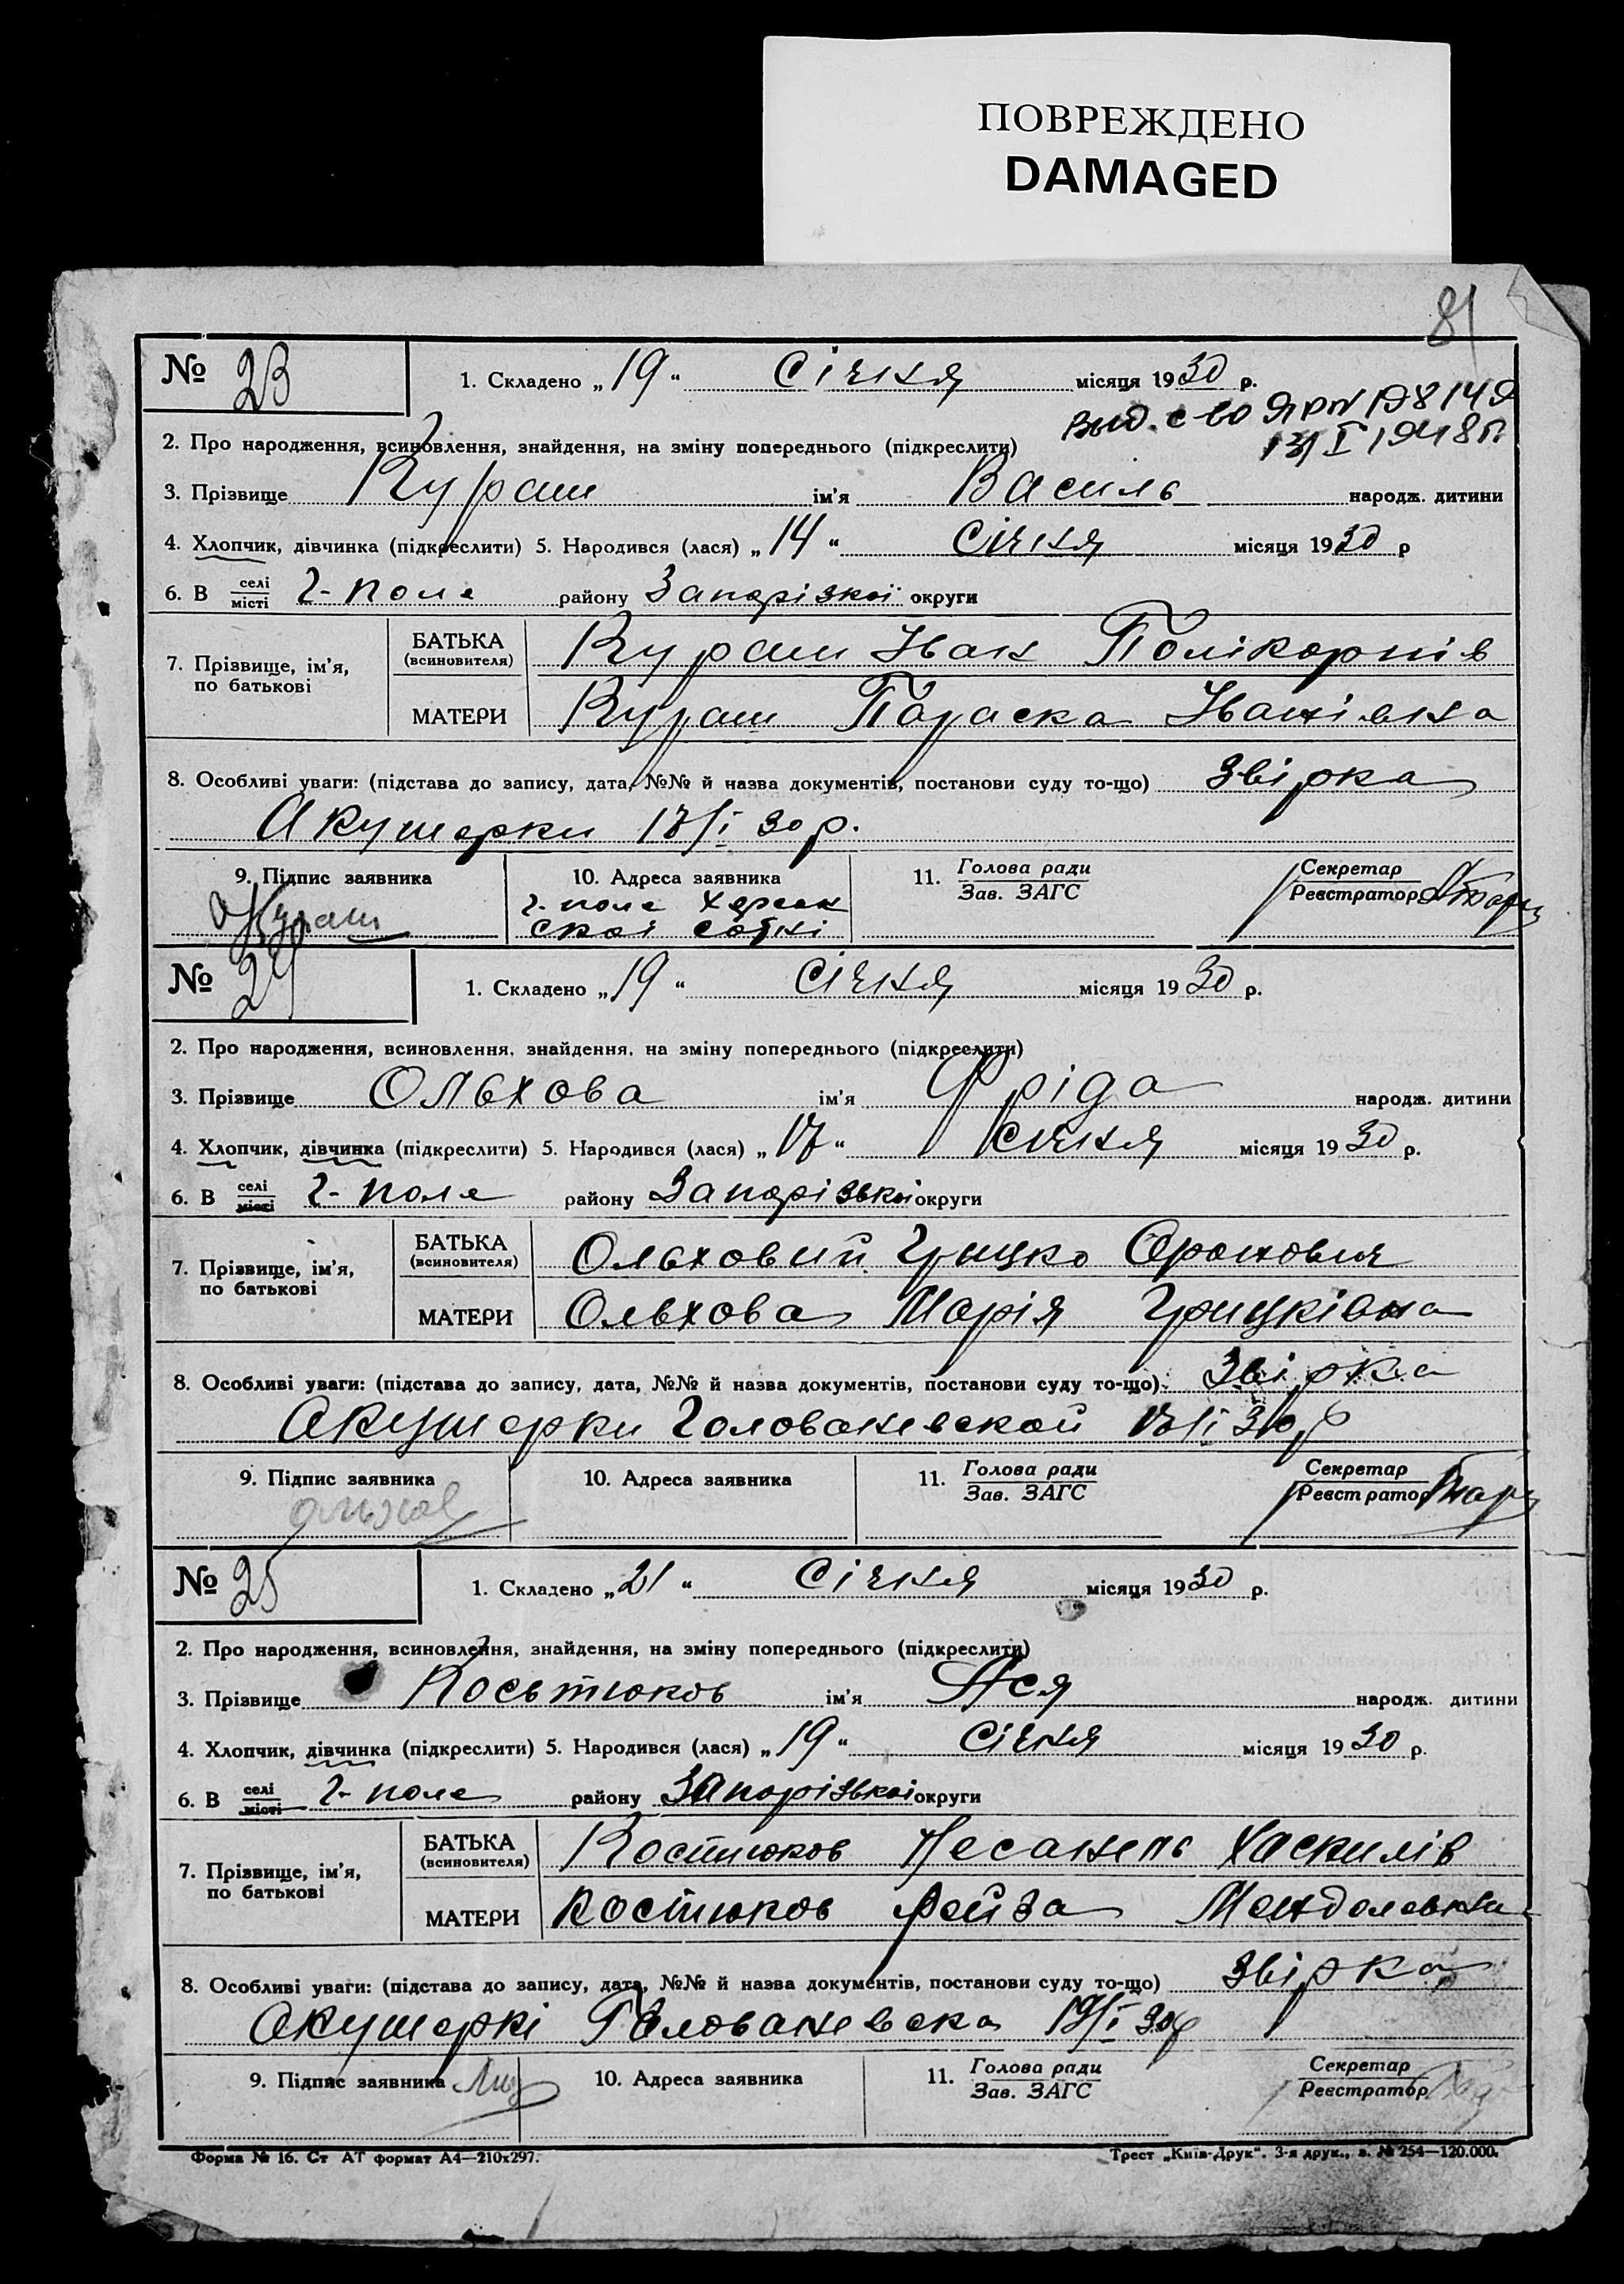 ПОВРЕЖДЕНО
DAMAGED
81
№ 23
1. Складено „19“ Січня місяця 1930 р.
Выд. с-во
13/I 1948 г.
2. Про народження, всиновлення, знайдення, на зміну попереднього (підкреслити)
3. Прізвище Кураш ім'я Василь народж. дитини
4. Хлопчик, дівчинка (підкреслити) 5. Народився (лася) „14“ Січня місяця 1930 р
6. В селі місті Г-поле району Запорізкої округи
7. Прізвище, ім'я, по батькові
БАТЬКА (всиновителя) Кураш Іван Полікарпів
МАТЕРИ Кураш Параска Іванівна
8. Особливі уваги: (підстава до запису, дата, №№ й назва документів, постанови суду то-що) Звірка
Акушерки 17/I 30 р.
9. Підпис заявника Кураш
10. Адреса заявника
Г-поле Херсон
скої сотні
11. Голова ради
Зав. ЗАГС
Секретар
Реєстратор
№ 24
1. Складено „19“ Січня місяця 1930 р.
2. Про народження, всиновлення, знайдення, на зміну попереднього (підкреслити)
3. Прізвище Ольхова ім'я Фріда народж. дитини
4. Хлопчик, дівчинка (підкреслити) 5. Народився (лася) „17“ Січня місяця 1930 р.
6. В селі місті Г-поле району Запорізької округи
7. Прізвище, ім'я, по батькові
БАТЬКА (всиновителя) Ольховий Грицко
МАТЕРИ Ольхова Марія Грицківна
8. Особливі уваги: (підстава до запису, дата, №№ й назва документів, постанови суду то-що) Звірка
Акушерки Голованевской 17/I 30 р
9. Підпис заявника
10. Адреса заявника
11. Голова ради
Зав. ЗАГС
Секретар
Реєстратор
№ 25
1. Складено „21“ Січня місяця 1930 р.
2. Про народження, всиновлення, знайдення, на зміну попереднього (підкреслити)
3. Прізвище Косьтюков ім'я Ася народж. дитини
4. Хлопчик, дівчинка (підкреслити) 5. Народився (лася) „19“ Січня місяця 1930 р.
6. В селі місті Г-поле району Запорізької округи
7. Прізвище, ім'я, по батькові
БАТЬКА (всиновителя) Костюков Несанель Хаскилів
МАТЕРИ Костюков Рейза Менделевна
8. Особливі уваги: (підстава до запису, дата, №№ й назва документів, постанови суду то-що) Звірка
Акушеркі Голованевска 19/I 30р
9. Підпис заявника
10. Адреса заявника
11. Голова ради
Зав. ЗАГС
Секретар
Реєстратор
Форма № 16. Ст АТ формат А4—210х297.
Трест „Київ-Друк“. 3-я друк., з. № 254—120.000.